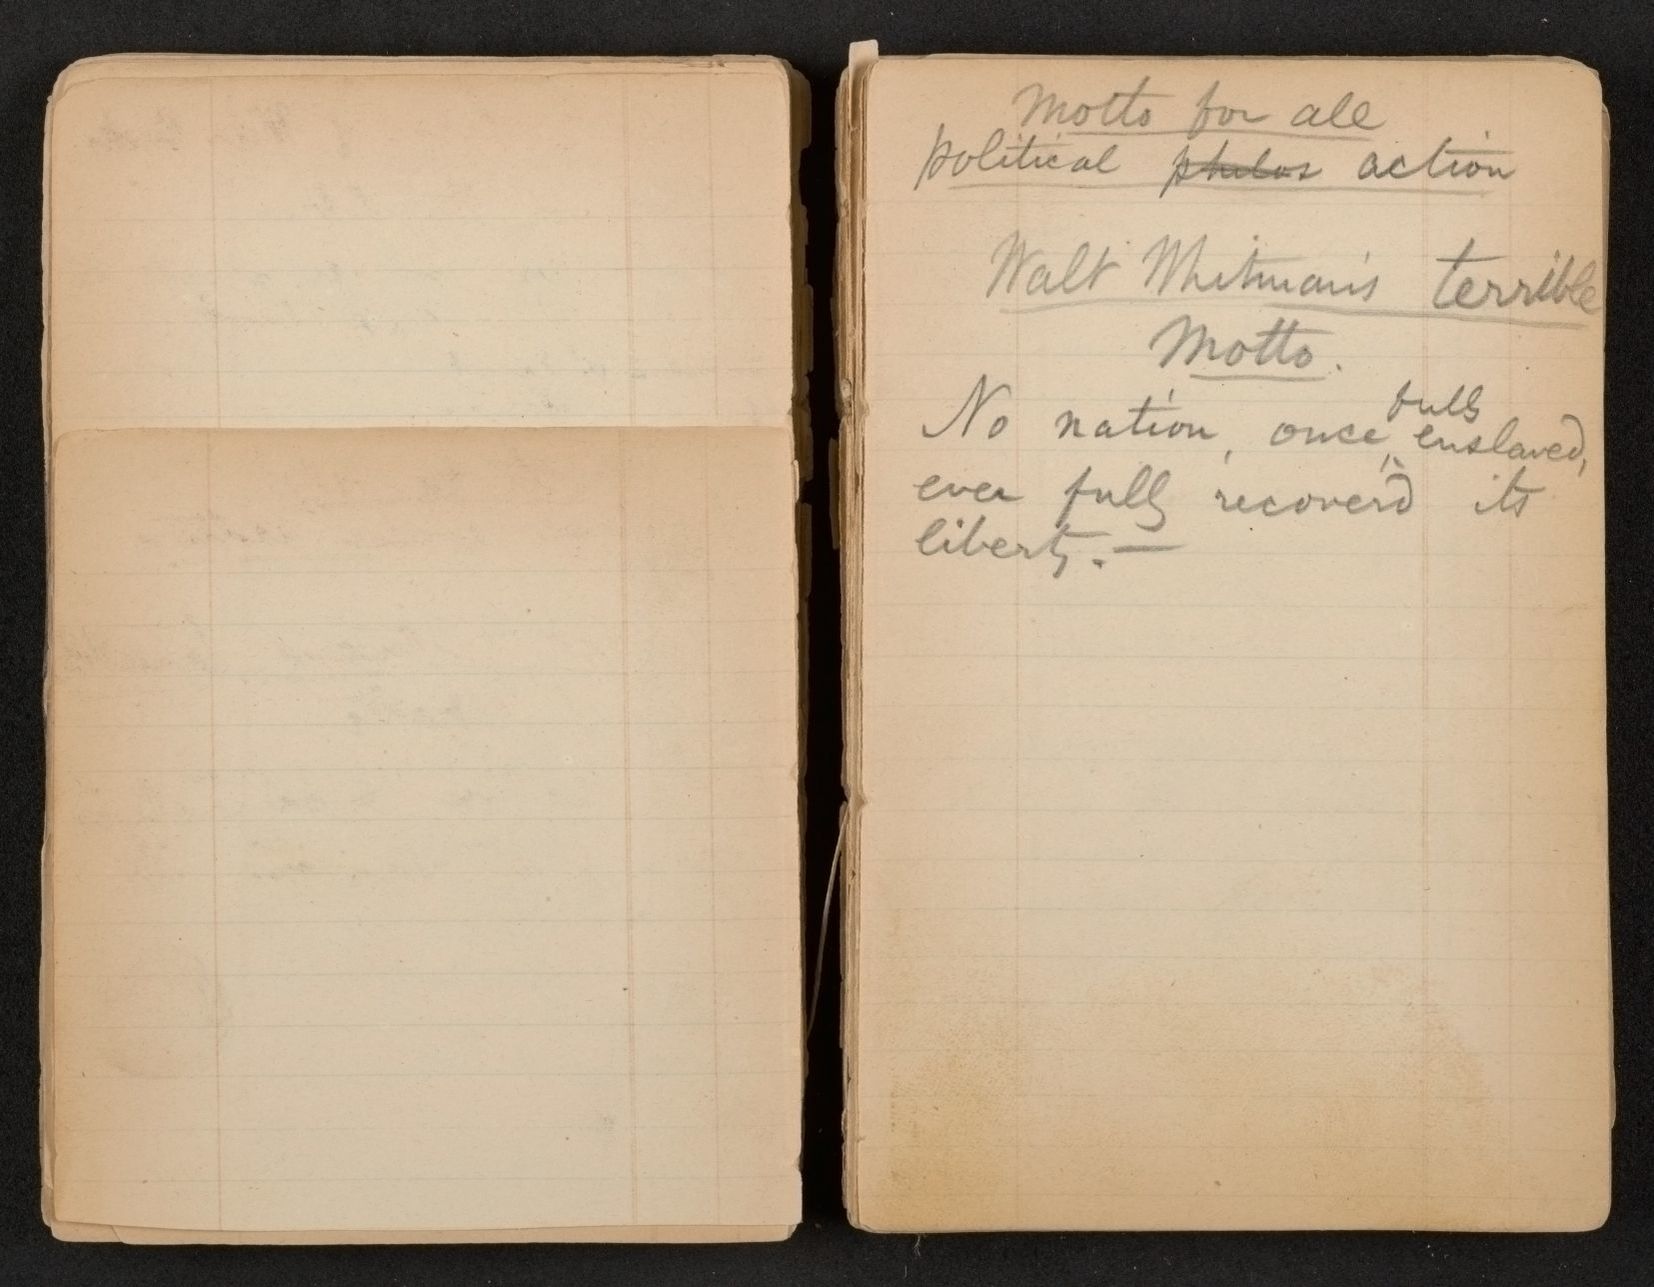 Motto for all
political philos action
Walt Whitman's terrible
Motto.
No nation, once, fully enslaved,
ever fully recover'd its
liberty.—